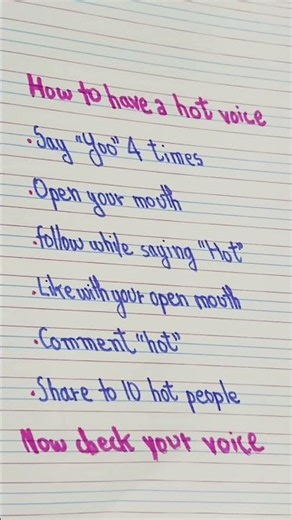 How to have a hot voice
•Say "Yoo" 4 times
•Open your mouth
•follow while saying "Hot"
•Like with your open mouth
•Comment "hot"
•Share to 10 hot people
Now check your voice